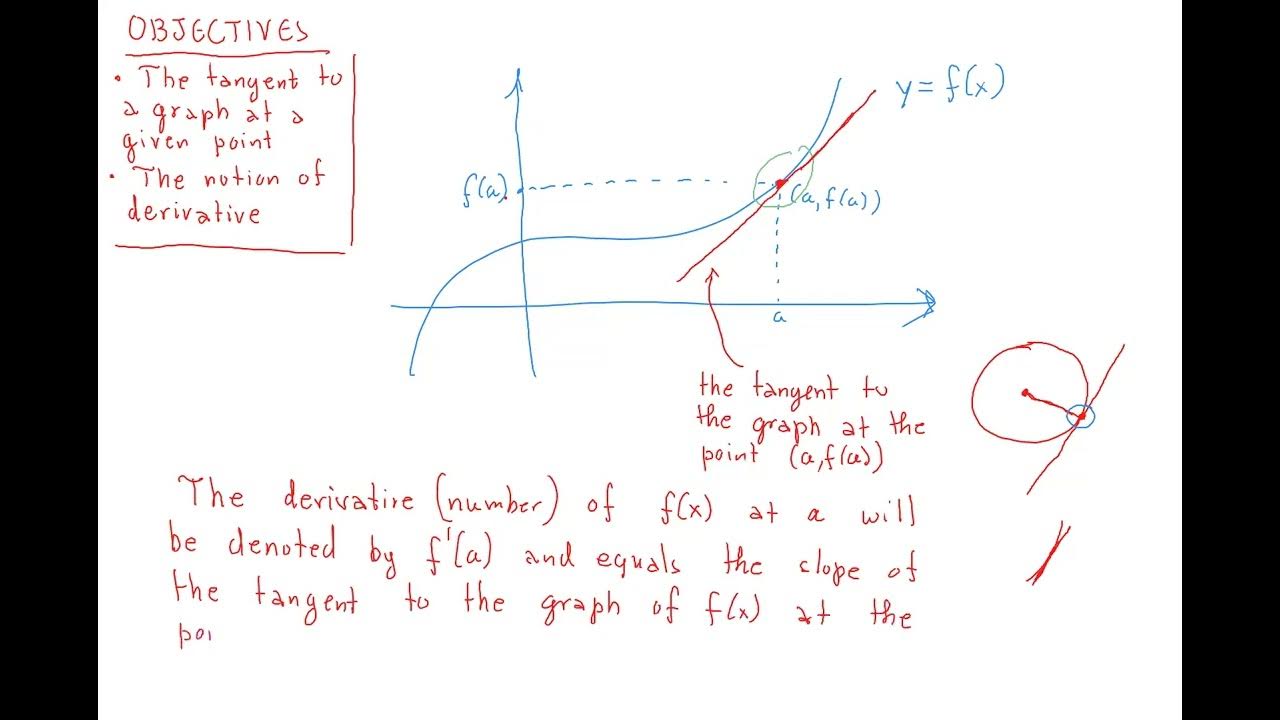 OBJECTIVES
• The tangent to
a graph at a
given point
• The notion of
derivative
y = f(x)
f(a)
(a, f(a))
a
the tangent to
the graph at the
point (a, f(a))
The derivative (number) of f(x) at a will
be denoted by f'(a) and equals the slope of
the tangent to the graph of f(x) at the
poi